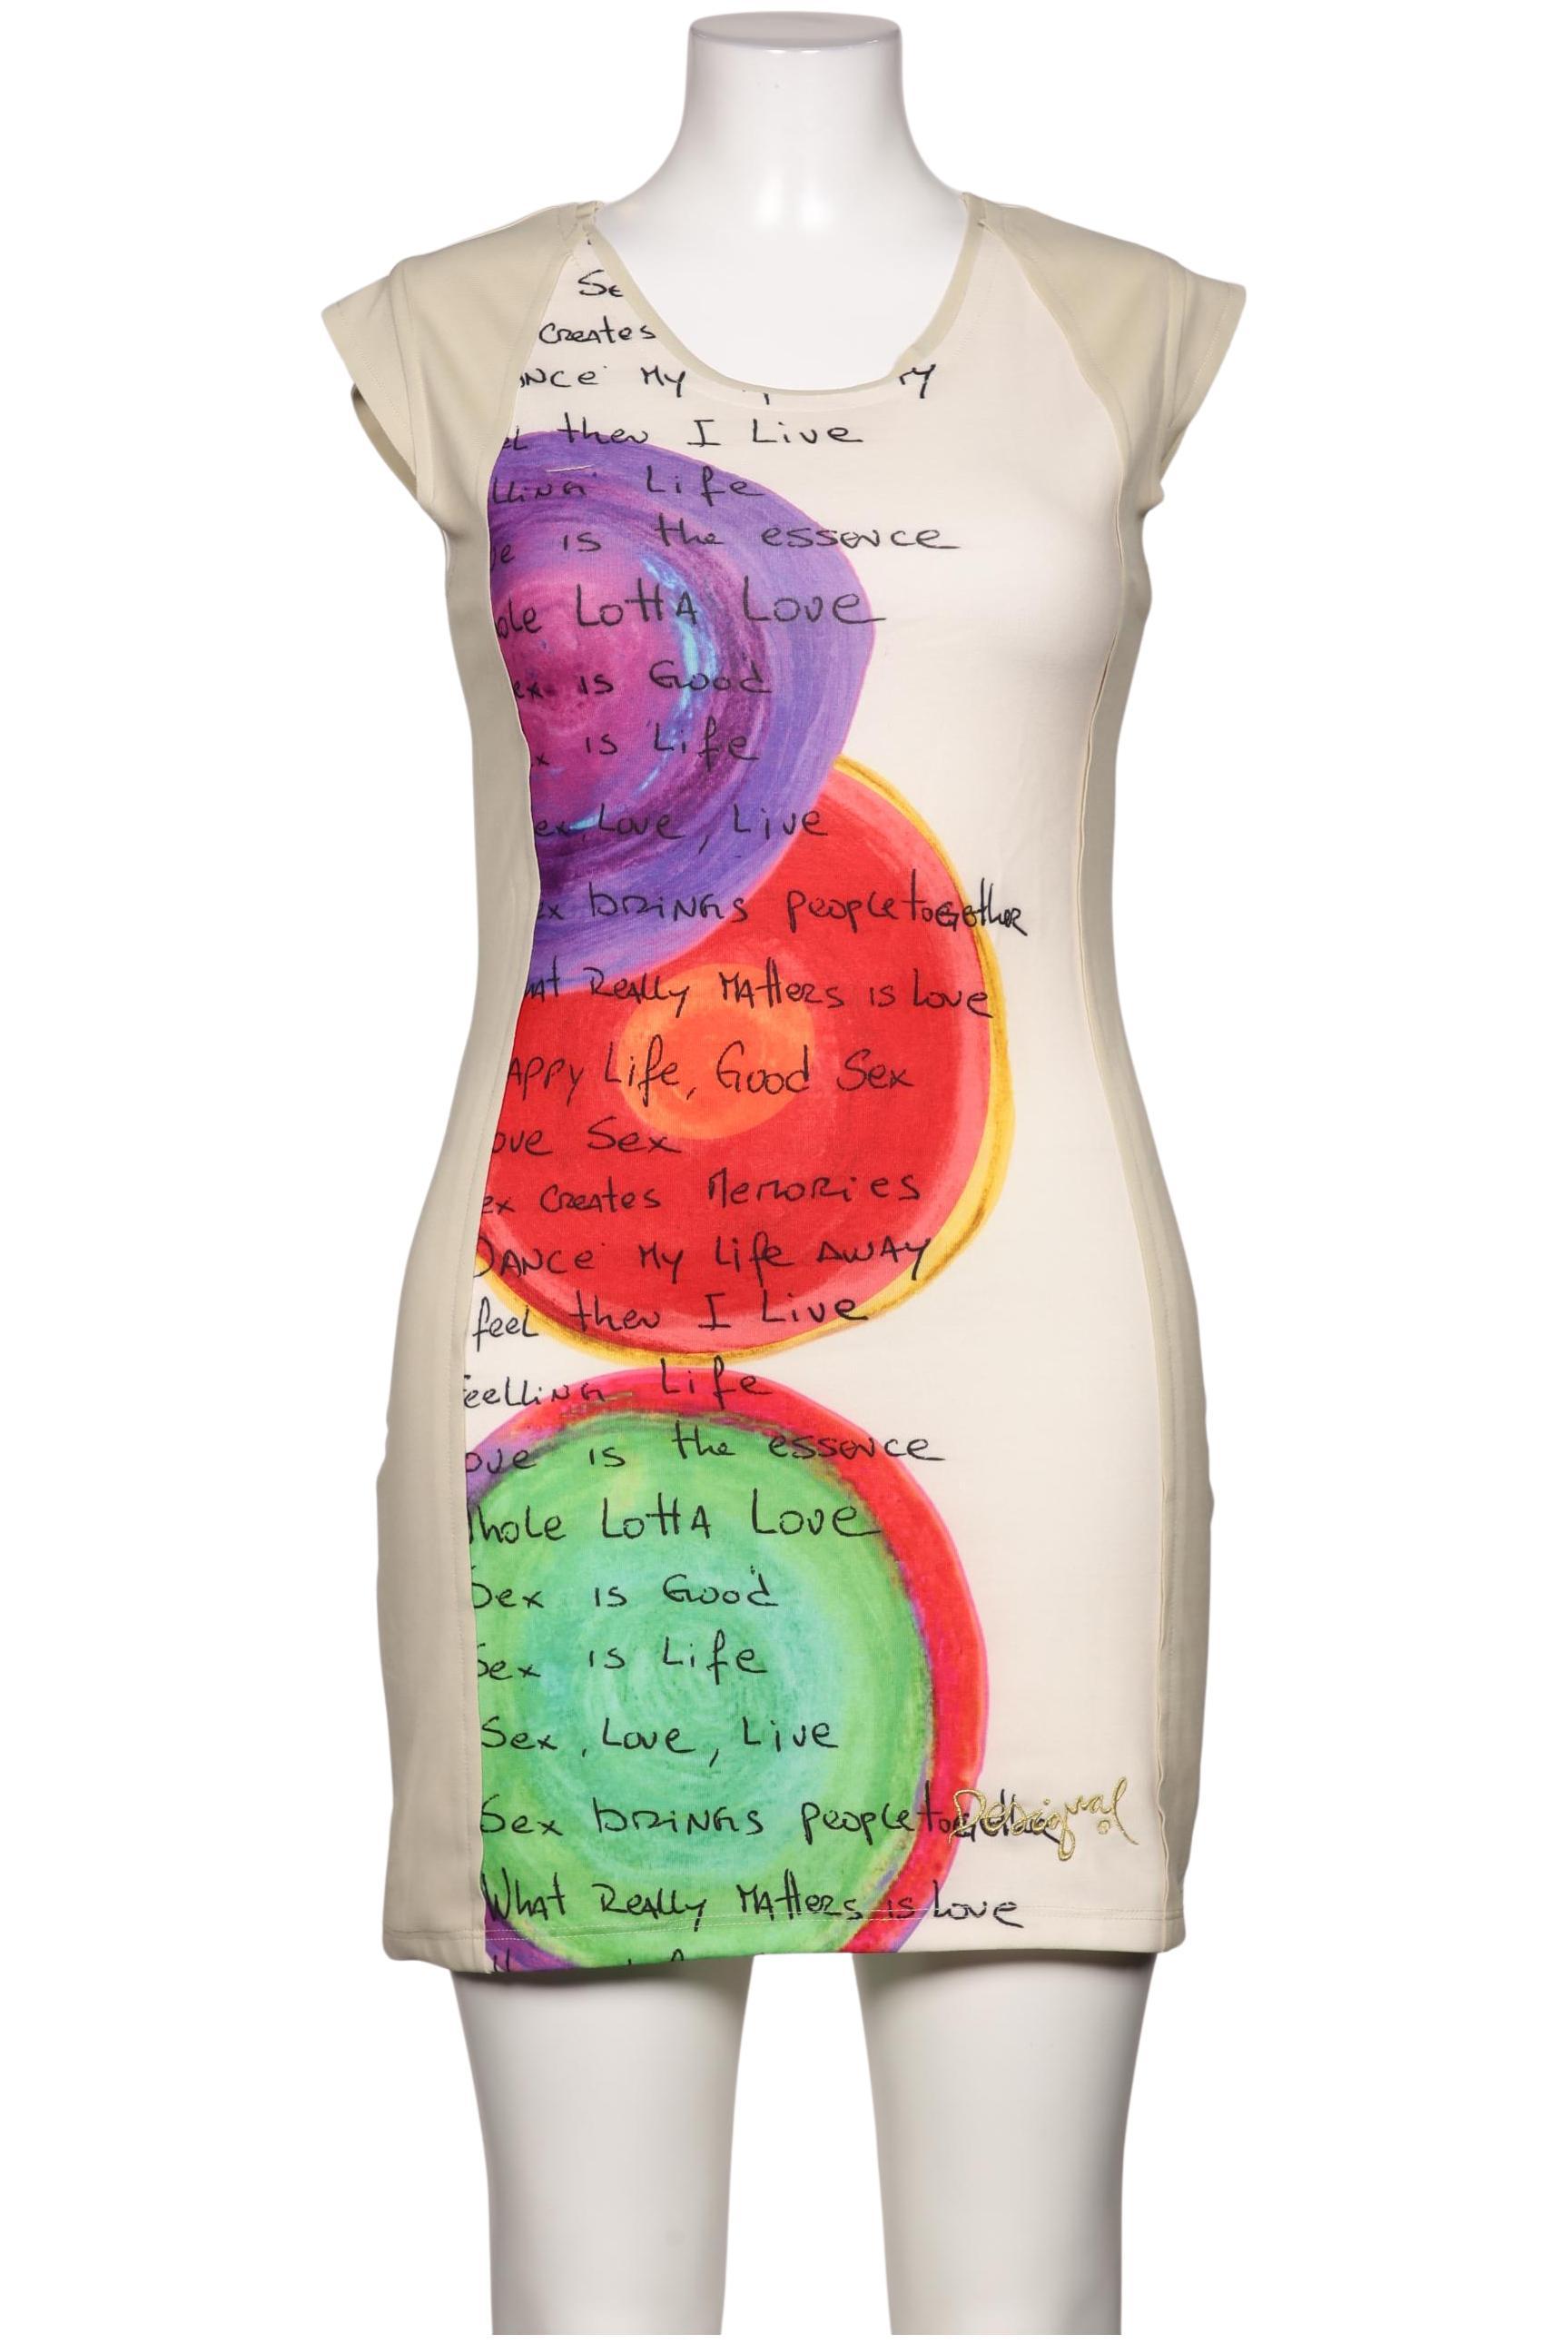 Se
Creates
ANCE My
el then I Live
lling Life
ve is the essence
hole Lotta Love
ex is Good
x is Life
ex, Love, Live
ex brings people together
hat Really Matters is Love
appy Life, Good Sex
ove Sex
ex Creates Memories
DANCE My Life AWAY
feel then I Live
Feelling Life
ove is the essence
Whole Lotta Love
Sex is Good
Sex is Life
Sex, Love, Live
Sex brings people together
Desigual
What Really Matters is Love